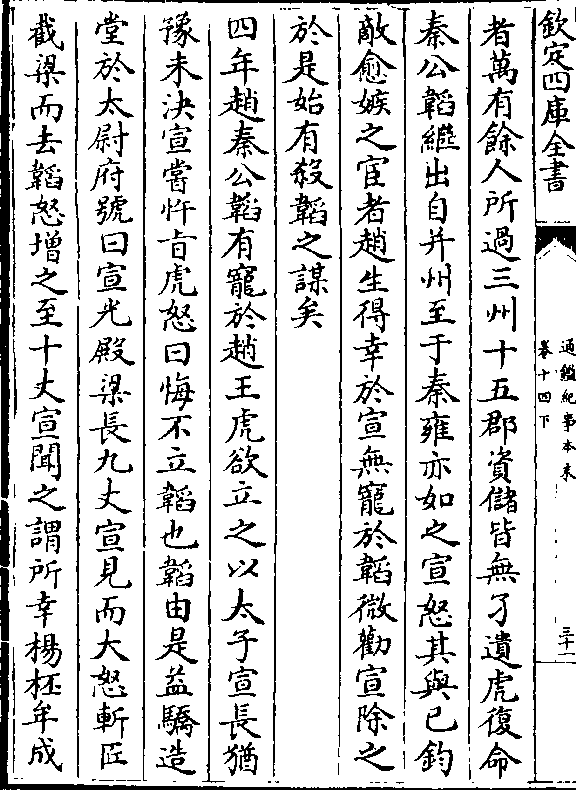 欽定四庫全書
通鑑紀事本末
卷十四下
三十一
者萬有餘人所過三州十五郡資儲皆無孑遺虎復命
秦公韜繼出自并州至于秦雍亦如之宣怒其與已鈞
敵愈嫉之宦者趙生得幸於宣無寵於韜微勸宣除之
於是始有殺韜之謀矣
四年趙秦公韜有寵於趙王虎欲立之以太子宣長猶
豫未決宣嘗忤旨虎怒曰悔不立韜也韜由是益驕造
堂於太尉府號曰宣光殿梁長九丈宣見而大怒斬匠
截梁而去韜怒增之至十丈宣聞之謂所幸楊柸牟成